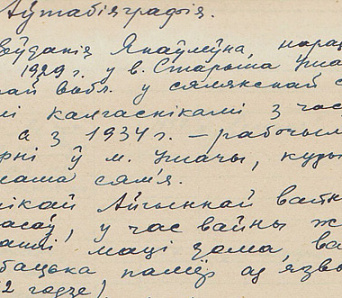 Аўтабіяграфія.
Ўўданія Якаўлеўна, нарад
1929 г. у в. Старыя Ушач
ай вобл. у сялянскай с
мі калгаснікамі з час
а з 1934 г. — рабочым
рні ў м. Ушачы, куды
наша сям'я.
лікай Айчыннай вайн
часаў, у час вайны ж
маці дома, ва
бацька памёр ад язвы
2 годзе)